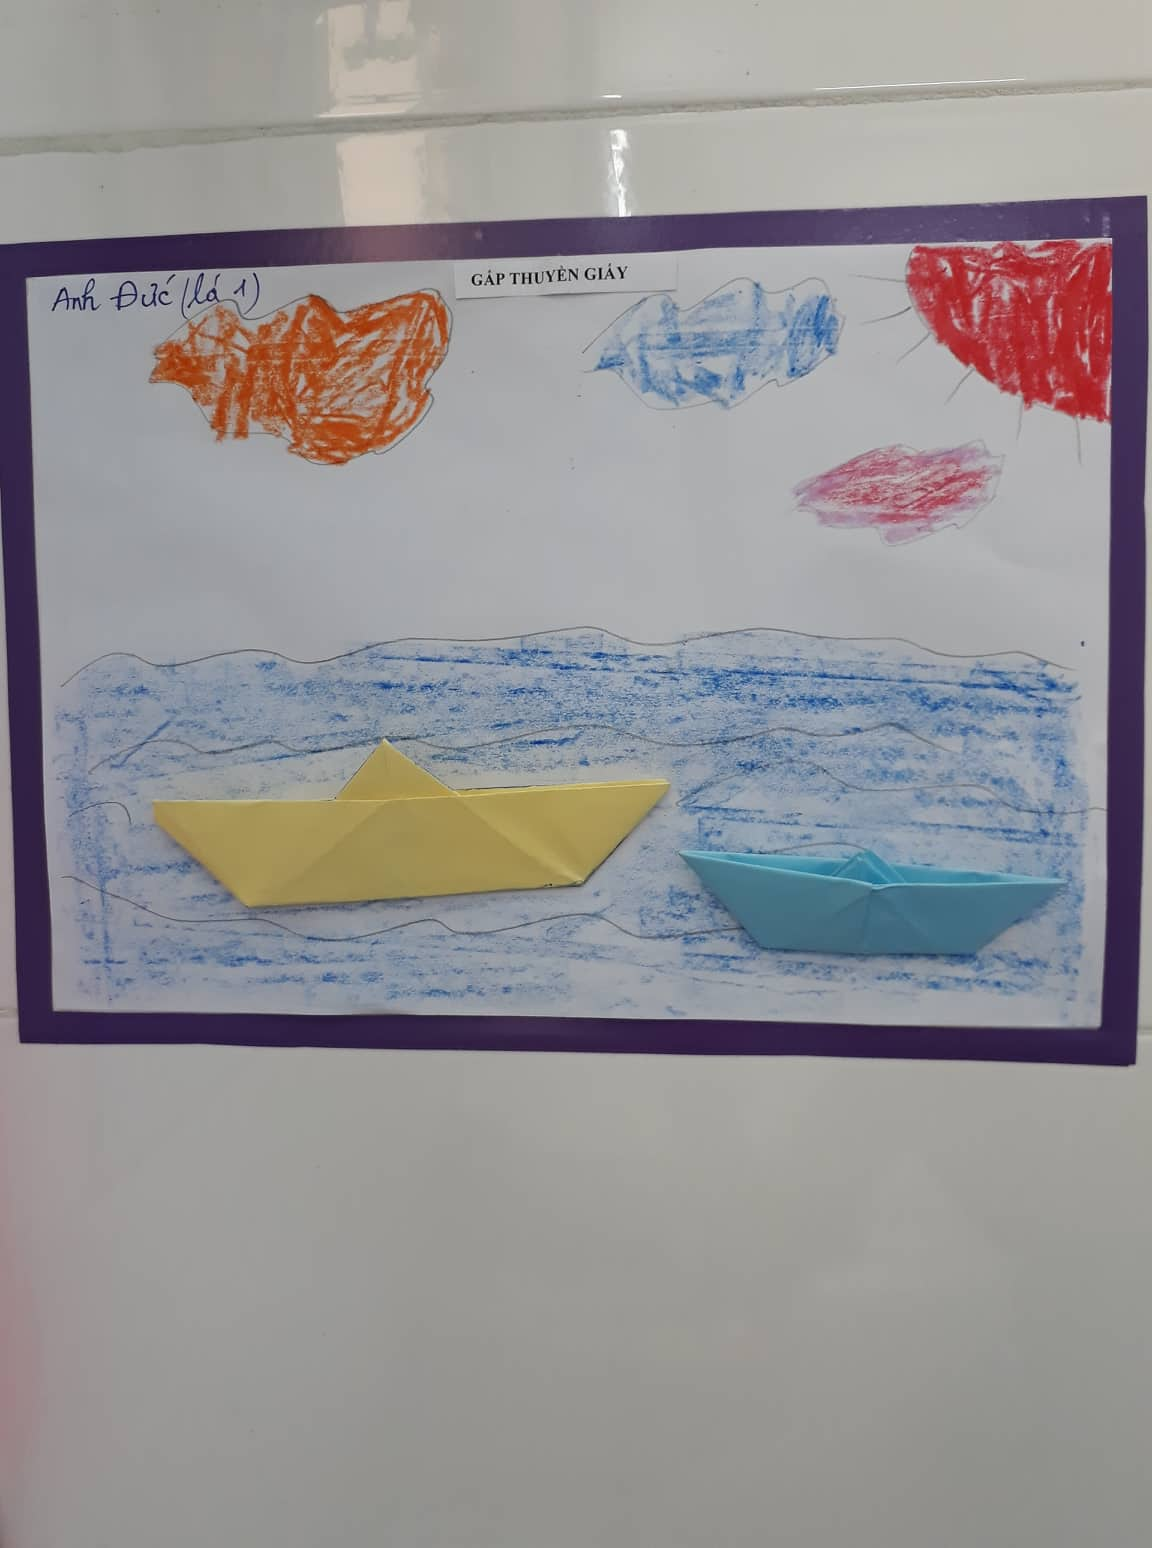 Anh Đức (lá 1)
GẤP THUYỀN GIẤY